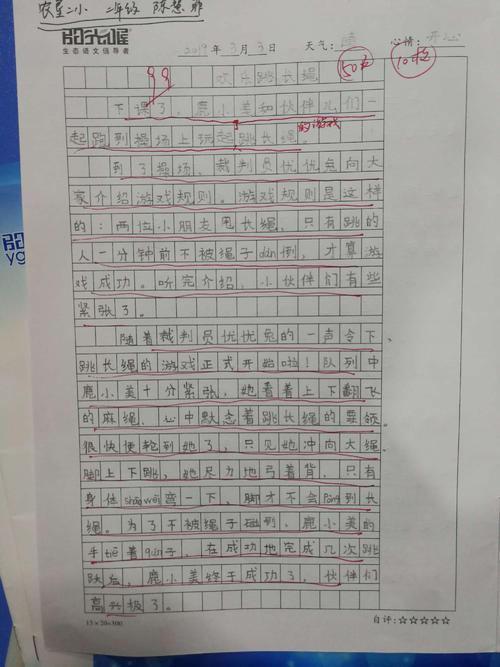 农垦二小 二年级 陈慧菲
阳光喔
生态语文倡导者
2019年3月3日 天气：晴 心情：开心
99 欢乐跳长绳 50枚 10枚
下课了，鹿小美和伙伴儿们一
起跑到操场上玩起跳长绳的游戏
到了操场，裁判员优优兔向大
家介绍游戏规则。游戏规则是这样
的：两位小朋友甩长绳，只有跳的
人一分钟前不被绳子dàn倒，才算游
戏成功。听完介绍，小伙伴们有些
紧张了。
随着裁判员优优兔的一声令下，
跳长绳的游戏正式开始啦！队列中
鹿小美十分紧张，她看着上下翻飞
的麻绳，心中默念着跳长绳的要领。
很快便轮到她了，只见她冲向大绳，
脚上下跳，她尽力地弓着背，只有
身体shāo wēi弯一下，脚才不会pèng到长
绳。为了不被绳子碰到，鹿小美的
手tí着qún子，在成功地完成几次跳
跃后，鹿小美终于成功了，伙伴们
高兴极了。
15×20=300 自评：☆☆☆☆☆